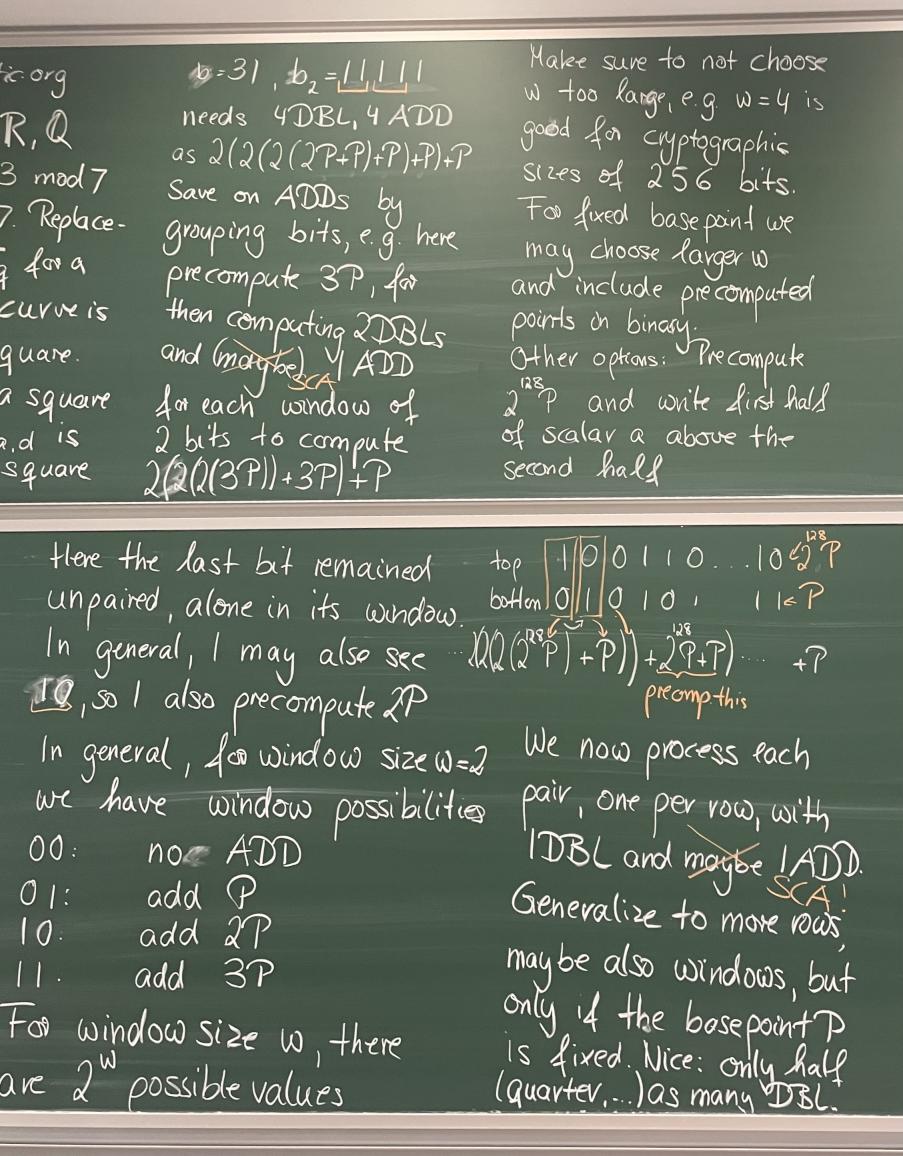 ic.org
R, Q
3 mod 7
7. Replace-
for a
curve is
quare.
a square
a,d is
square
b=31, b₂=11111
needs 4DBL, 4 ADD
as 2(2(2(2P+P)+P)+P)+P
Save on ADDs by
grouping bits, e.g. here
precompute 3P, for
then computing 2DBLs
and (maybe) 1 ADD
SCA
for each window of
2 bits to compute
2(2(2(3P))+3P)+P
Make sure to not choose
w too large, e.g. w=4 is
good for cryptographic
sizes of 256 bits.
For fixed basepoint we
may choose larger w
and include precomputed
points in binary.
Other options: Precompute
2¹²⁸P and write first half
of scalar a above the
second half
Here the last bit remained
unpaired, alone in its window.
In general, I may also see
10, so I also precompute 2P
In general, for window size w=2
we have window possibilities
00: no ADD
01: add P
10: add 2P
11. add 3P
For window size w, there
are 2ʷ possible values
top 1 0 0 1 1 0 ... 1 0 < 2¹²⁸P
bottom 0 1 0 1 0 1 1 1 < P
...2(2(2(2¹²⁸P)+P))+2¹²⁸P+P) ... +P
precomp. this
We now process each
pair, one per row, with
1DBL and maybe 1ADD.
SCA!
Generalize to more rows,
maybe also windows, but
only if the basepoint P
is fixed. Nice: only half
(quarter,...) as many DBL.